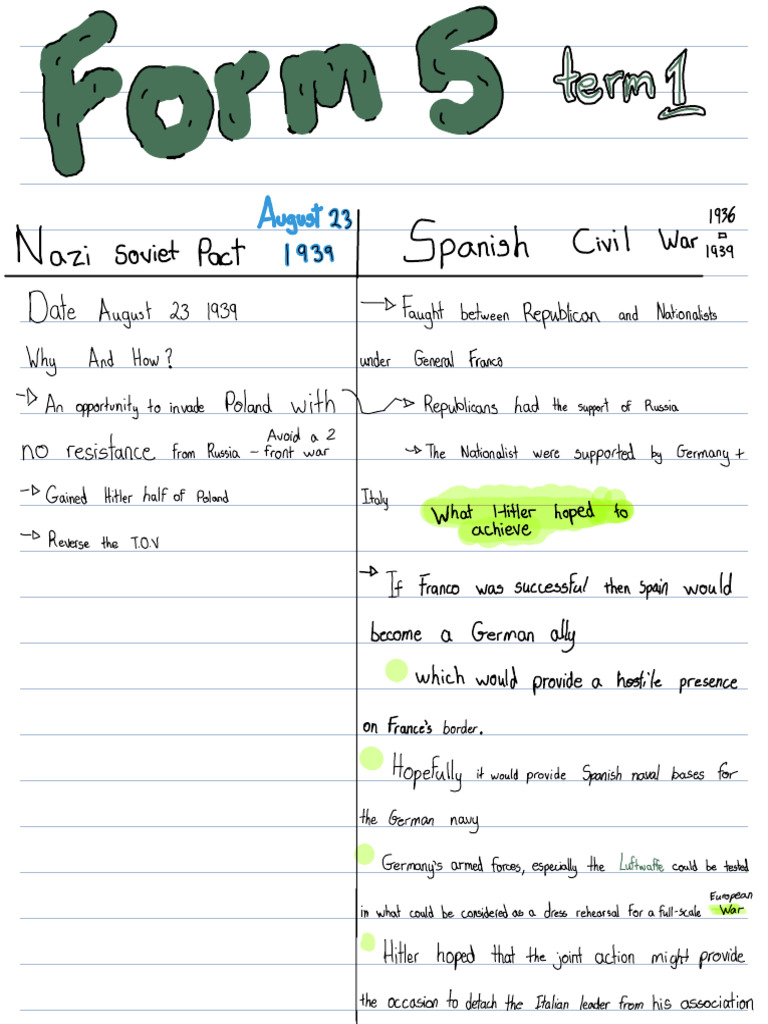 Form 5 term 1
Nazi Soviet Pact
August 23
1939
Date August 23 1939
Why And How?
An opportunity to invade Poland with
no resistance from Russia - Avoid a 2
front war
Gained Hitler half of Poland
Reverse the T.O.V
Spanish Civil War 1936
-
1939
Faught between Republican and Nationalists
under General Franco
Republicans had the support of Russia
The Nationalist were supported by Germany +
Italy
What Hitler hoped to
achieve
If Franco was successful then Spain would
become a German ally
which would provide a hostile presence
on France's border.
Hopefully it would provide Spanish naval bases for
the German navy
Germany's armed forces, especially the Luftwaffe could be tested
in what could be considered as a dress rehearsal for a full-scale European
War
Hitler hoped that the joint action might provide
the occasion to detach the Italian leader from his association